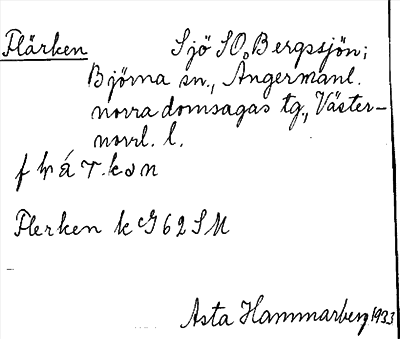 Flärken Sjö SO. Bergssjön;
Björna sn., Ångermanl.
norra domsagas tg., Väster-
norrl. l.
Flerken k G62SM
Asta Hammarberg 1933